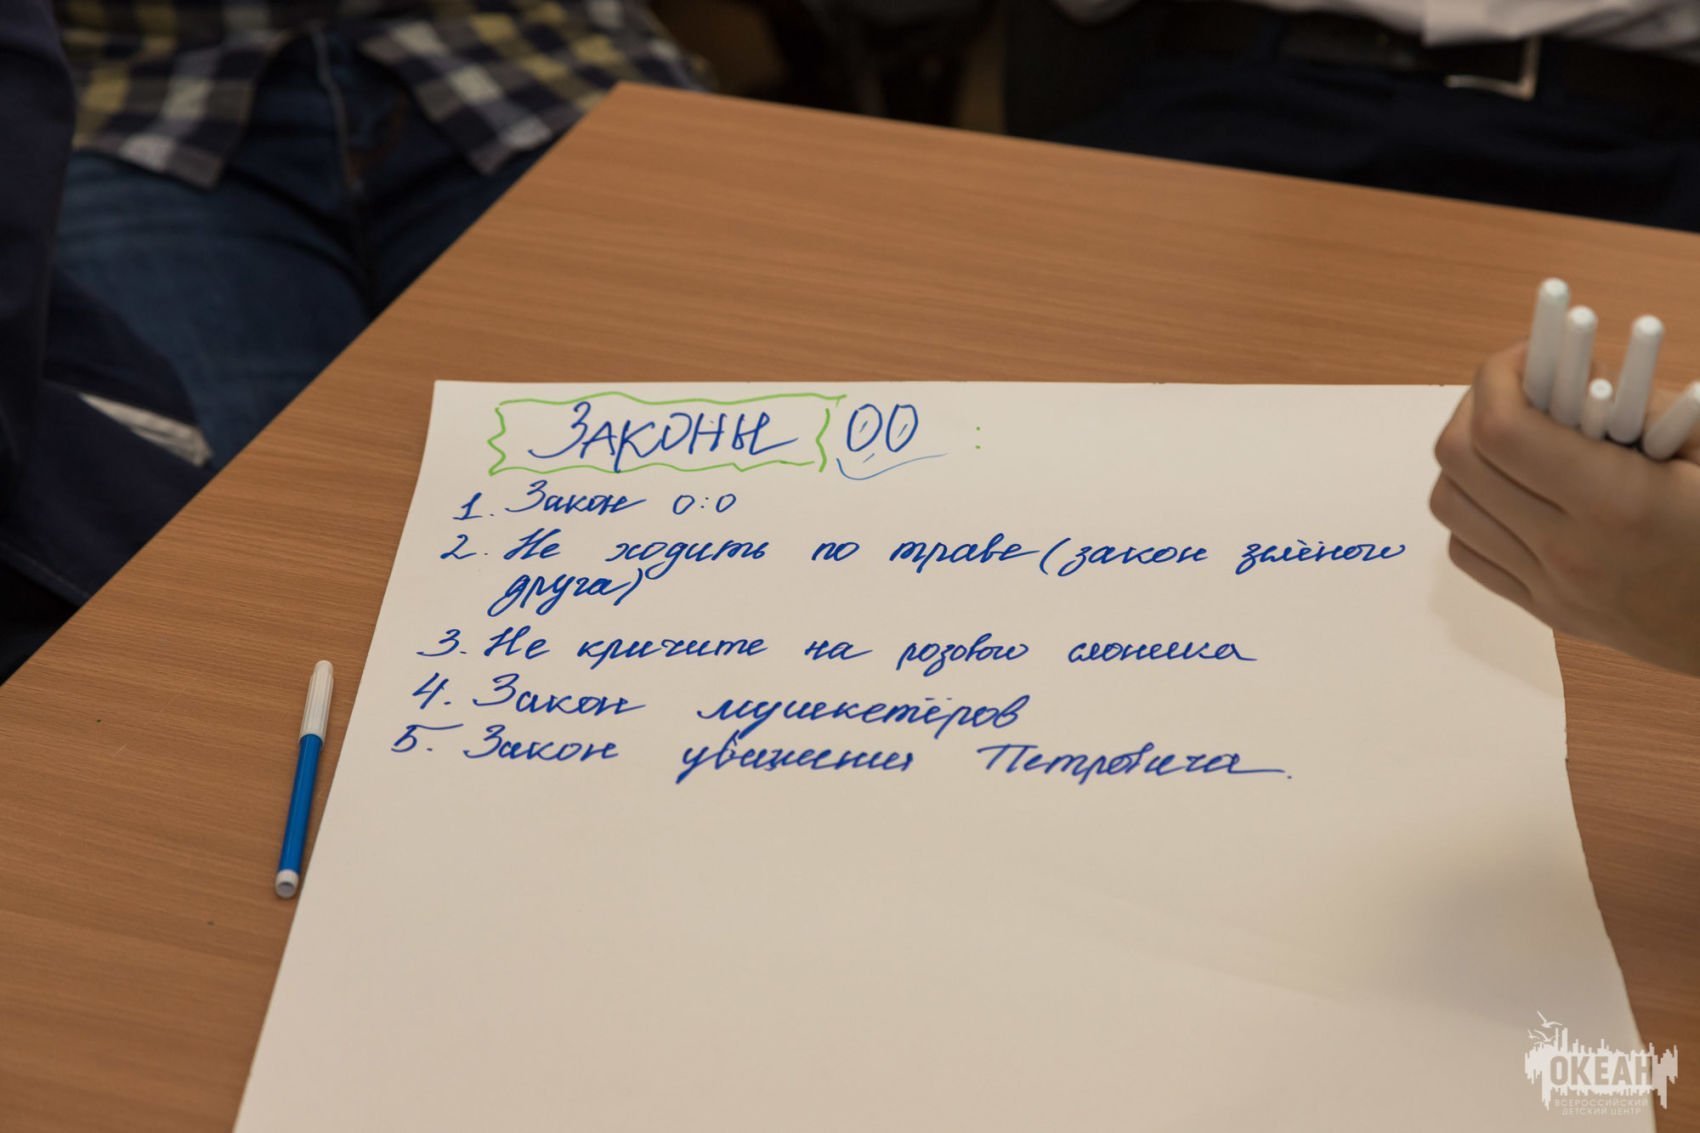 ЗАКОНЫ ОО :
1. Закон 0:0
2. Не ходить по траве (закон зелёного
друга)
3. Не кричите на розового слоника
4. Закон мушкетёров
5. Закон уважения Петровича.
ОКЕАН
ВСЕРОССИЙСКИЙ
ДЕТСКИЙ ЦЕНТР